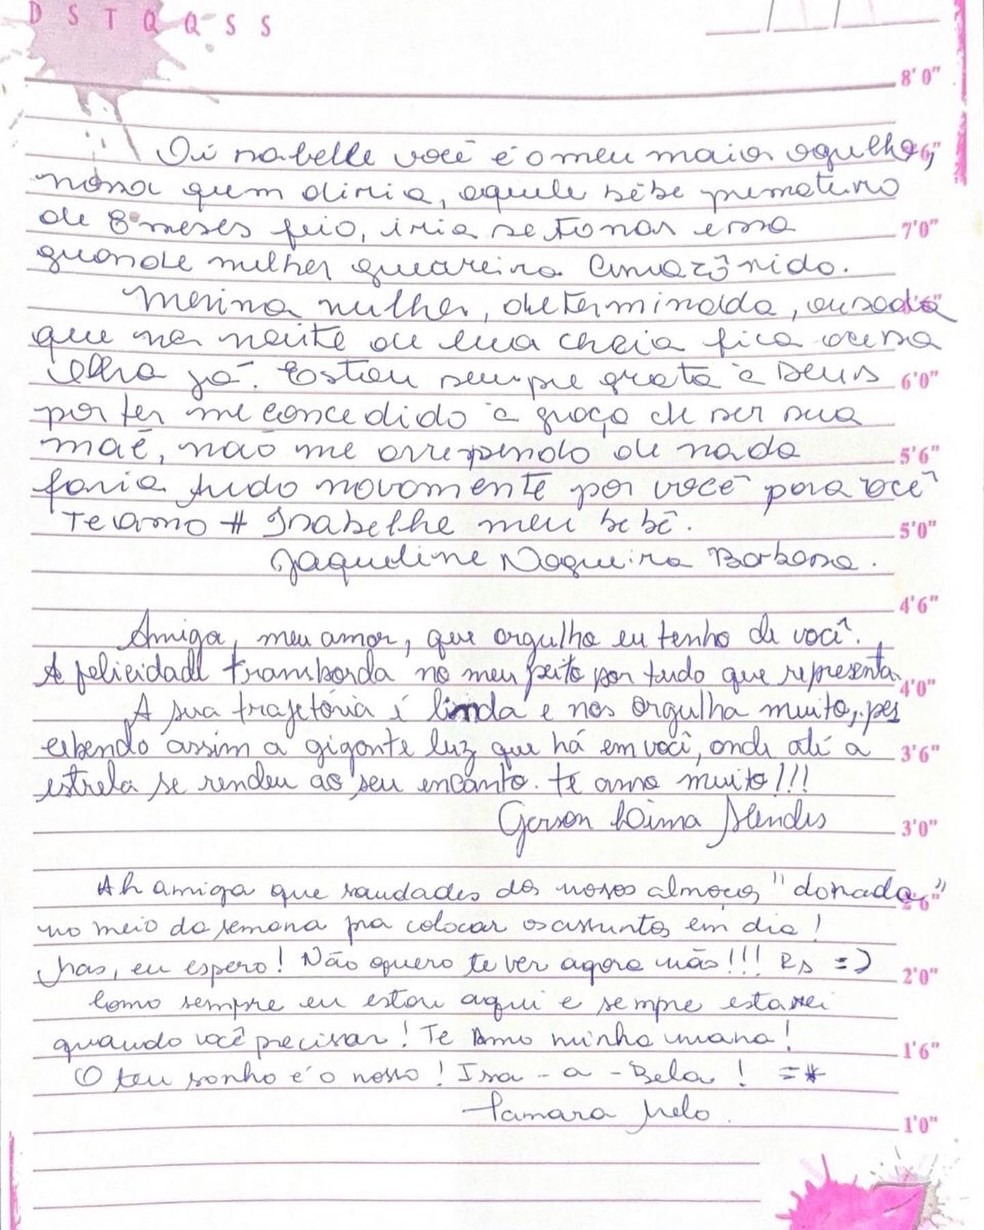 D S T Q Q S S
8'0"
Oi isabelle você é o meu maior ogulho,
nossa quem diria, aquele bêbe prematuro
de 8 meses feio, iria se tornar essa
7'0"
grande mulher guerreira Amazônida.
Menina mulher, determinada, ousada
que na noite de lua cheia fica acesa
Olha já. Estou sempre grata a Deus
6'0"
por ter me concedido a graça de ser sua
maẽ, naõ me arrependo de nada
5'6"
faria tudo novamente por você para você
Te amo # Isabelhe meu bebê.
5'0"
Jaqueline Nogueira Barbosa.
4'6"
Amiga, meu amor, que orgulho eu tenho de você.
A felicidade transborda no meu peito por tudo que representa.
4'0"
A sua trajetória é linda e nos orgulha muito, per
cebendo assim a gigante luz que há em você, onde até a
3'6"
estrela se rendeu ao seu encanto. te amo muito!!!
Gerson Lima Mendes
3'0"
Ah amiga que saudades dos nosos almoços "donada"
2'6"
no meio da semana pra colocar os assuntos em dia!
Mas, eu espero! Não quero te ver agora não!!! Rs =)
2'0"
Como sempre eu estou aqui e sempre estarei
quando você precisar! Te Amo minha mana!
1'6"
O teu sonho é o nosso! Isa-a-Bela! =*
Tamara Melo.
1'0"